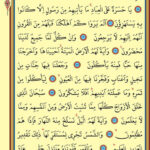 يَا حَسْرَةً عَلَى الْعِبَادِ مَا يَأْتِيهِمْ مِنْ رَسُولٍ إِلَّا كَانُوا
بِهِ يَسْتَهْزِءُونَ أَلَمْ يَرَوْا كَمْ أَهْلَكْنَا قَبْلَهُمْ مِنَ الْقُرُونِ
أَنَّهُمْ إِلَيْهِمْ لَا يَرْجِعُونَ وَإِنْ كُلٌّ لَمَّا جَمِيعٌ لَدَيْنَا
مُحْضَرُونَ وَآيَةٌ لَهُمُ الْأَرْضُ الْمَيْتَةُ أَحْيَيْنَاهَا وَأَخْرَجْنَا
مِنْهَا حَبًّا فَمِنْهُ يَأْكُلُونَ وَجَعَلْنَا فِيهَا جَنَّاتٍ مِنْ
نَخِيلٍ وَأَعْنَابٍ وَفَجَّرْنَا فِيهَا مِنَ الْعُيُونِ لِيَأْكُلُوا
مِنْ ثَمَرِهِ وَمَا عَمِلَتْهُ أَيْدِيهِمْ أَفَلَا يَشْكُرُونَ سُبْحَانَ الَّذِي
خَلَقَ الْأَزْوَاجَ كُلَّهَا مِمَّا تُنْبِتُ الْأَرْضُ وَمِنْ أَنْفُسِهِمْ
وَمِمَّا لَا يَعْلَمُونَ وَآيَةٌ لَهُمُ اللَّيْلُ نَسْلَخُ مِنْهُ النَّهَارَ فَإِذَا هُمْ
مُظْلِمُونَ وَالشَّمْسُ تَجْرِي لِمُسْتَقَرٍّ لَهَا ذَلِكَ